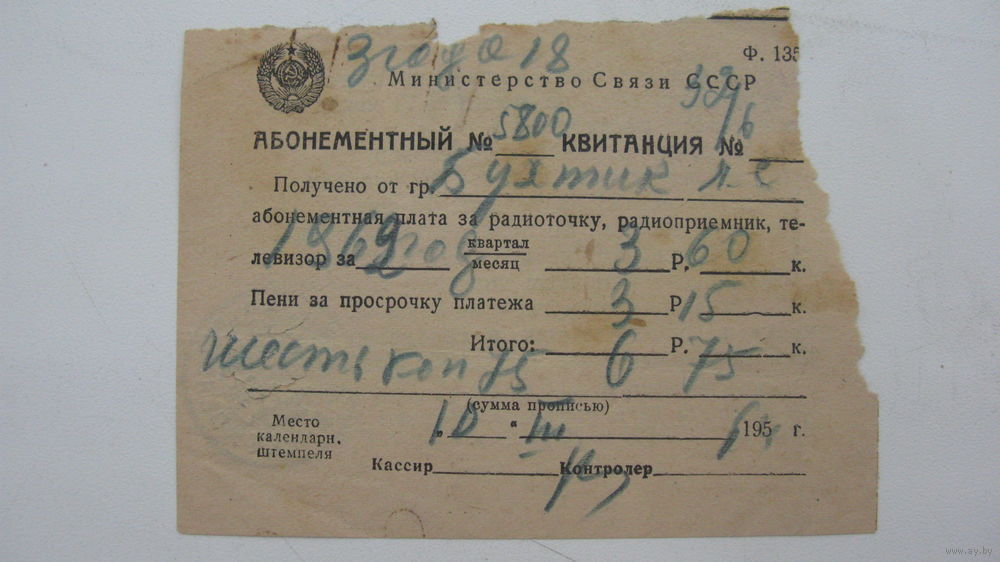 Ф. 135
3 года 18
Министерство Связи СССР
АБОНЕМЕНТНЫЙ № 5800 КВИТАНЦИЯ №
Получено от гр. Бухтик
абонементная плата за радиоточку, радиоприемник, те-
левизор за 1962 год квартал
месяц 3 Р. 60 к.
Пени за просрочку платежа 3 Р 15 к.
Итого: 6 Р. 75 к.
шесть коп 75
(сумма прописью)
Место
календарн.
штемпеля
„ 10 “ III 195 г.
Кассир Контролер
www.ay.by